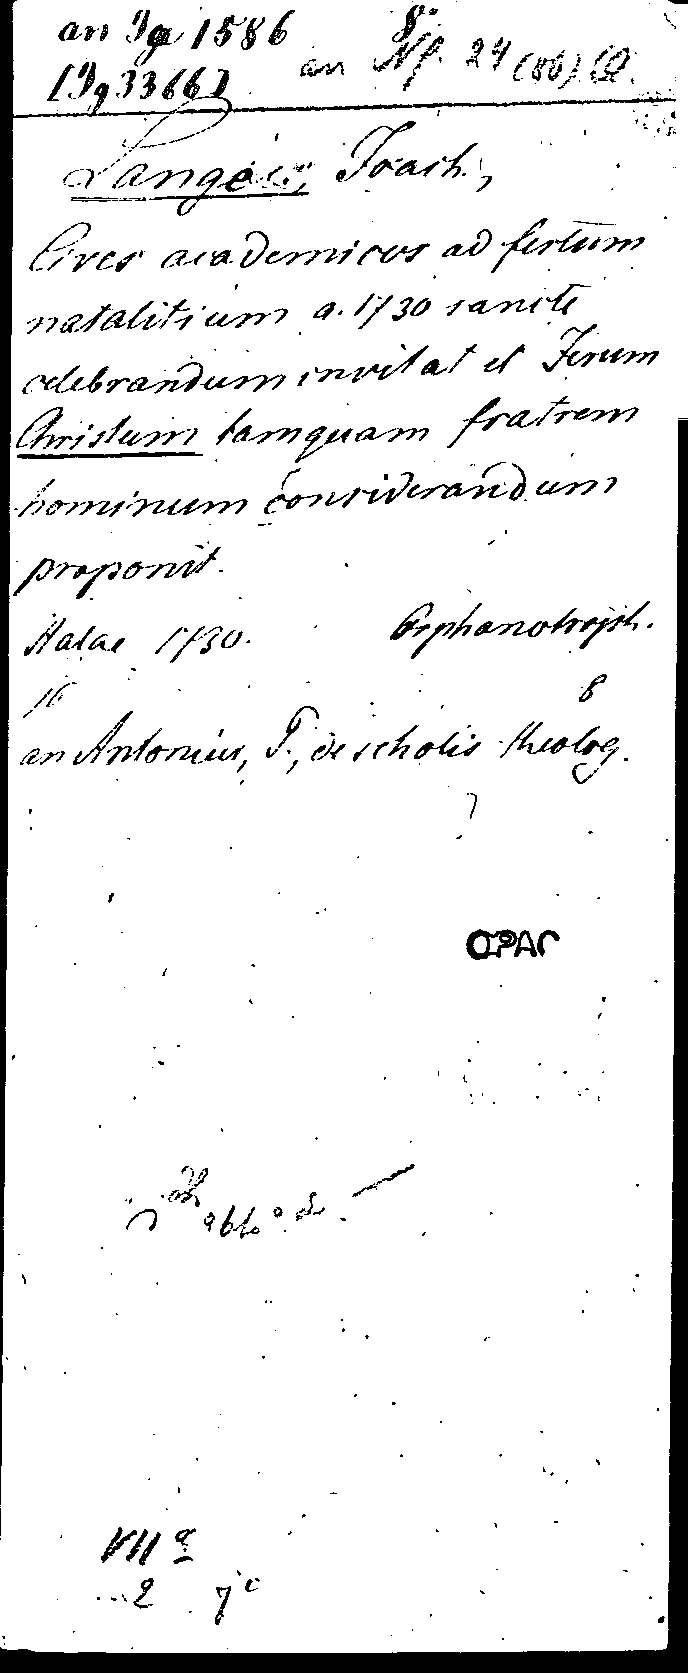 an Ig 1586
[Ig 3366] an 8° Nf. 24 (86)
Langius, Joach.,
Cives academicos ad festum
natalitium a. 1730 sancte
celebrandum invitat et Jesum
Christum tamquam fratrem
hominum considerandum
proponit.
Halae 1730. Orphanotroph.
16 8
an Antonius, P., de scholis theolog.
OPAC
VII a
2 7 c